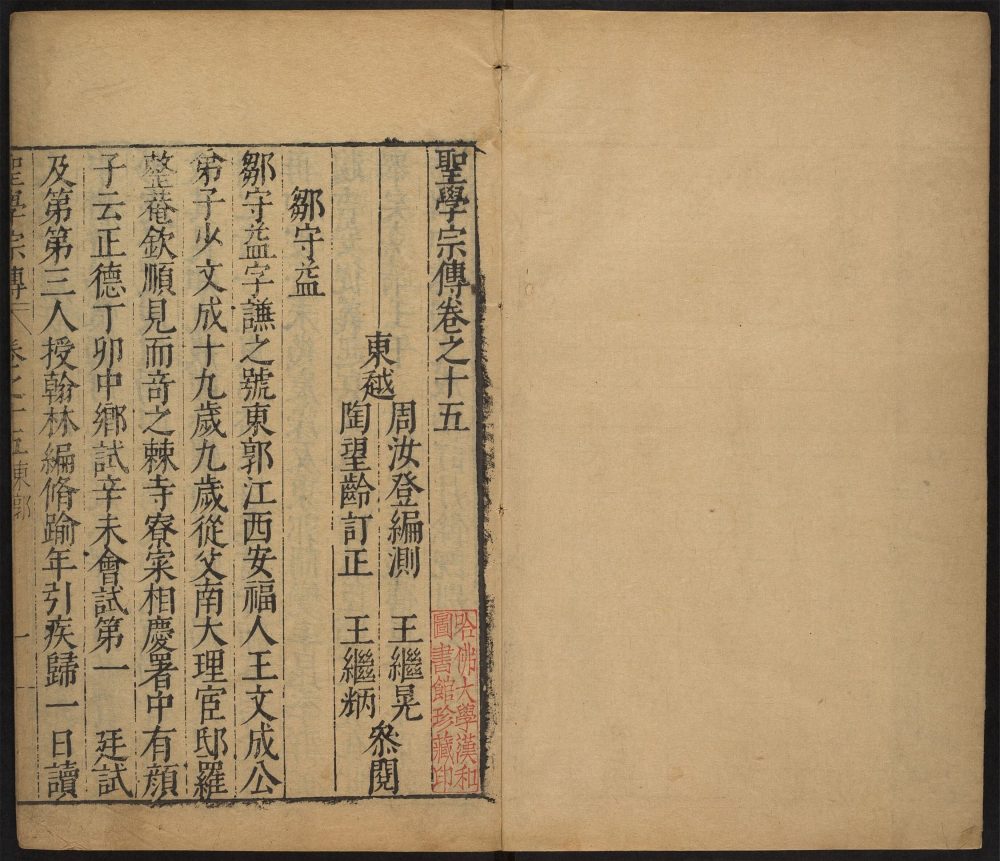 聖學宗傳卷之十五
東越
周汝登編測 王繼晃
陶望齡訂正 王繼炳
叅閱
鄒守益
鄒守益字謙之號東郭江西安福人王文成公
弟子少文成十九歲九歲從父南大理宦邸羅
整菴欽順見而竒之棘寺寮寀相慶署中有顔
子云正德丁卯中鄉試辛未會試第一 廷試
及第第三人授翰林編脩踰年引疾歸一日讀
聖學宗傳 卷之十五東郭 一
哈佛大學漢和
圖書館珍藏印